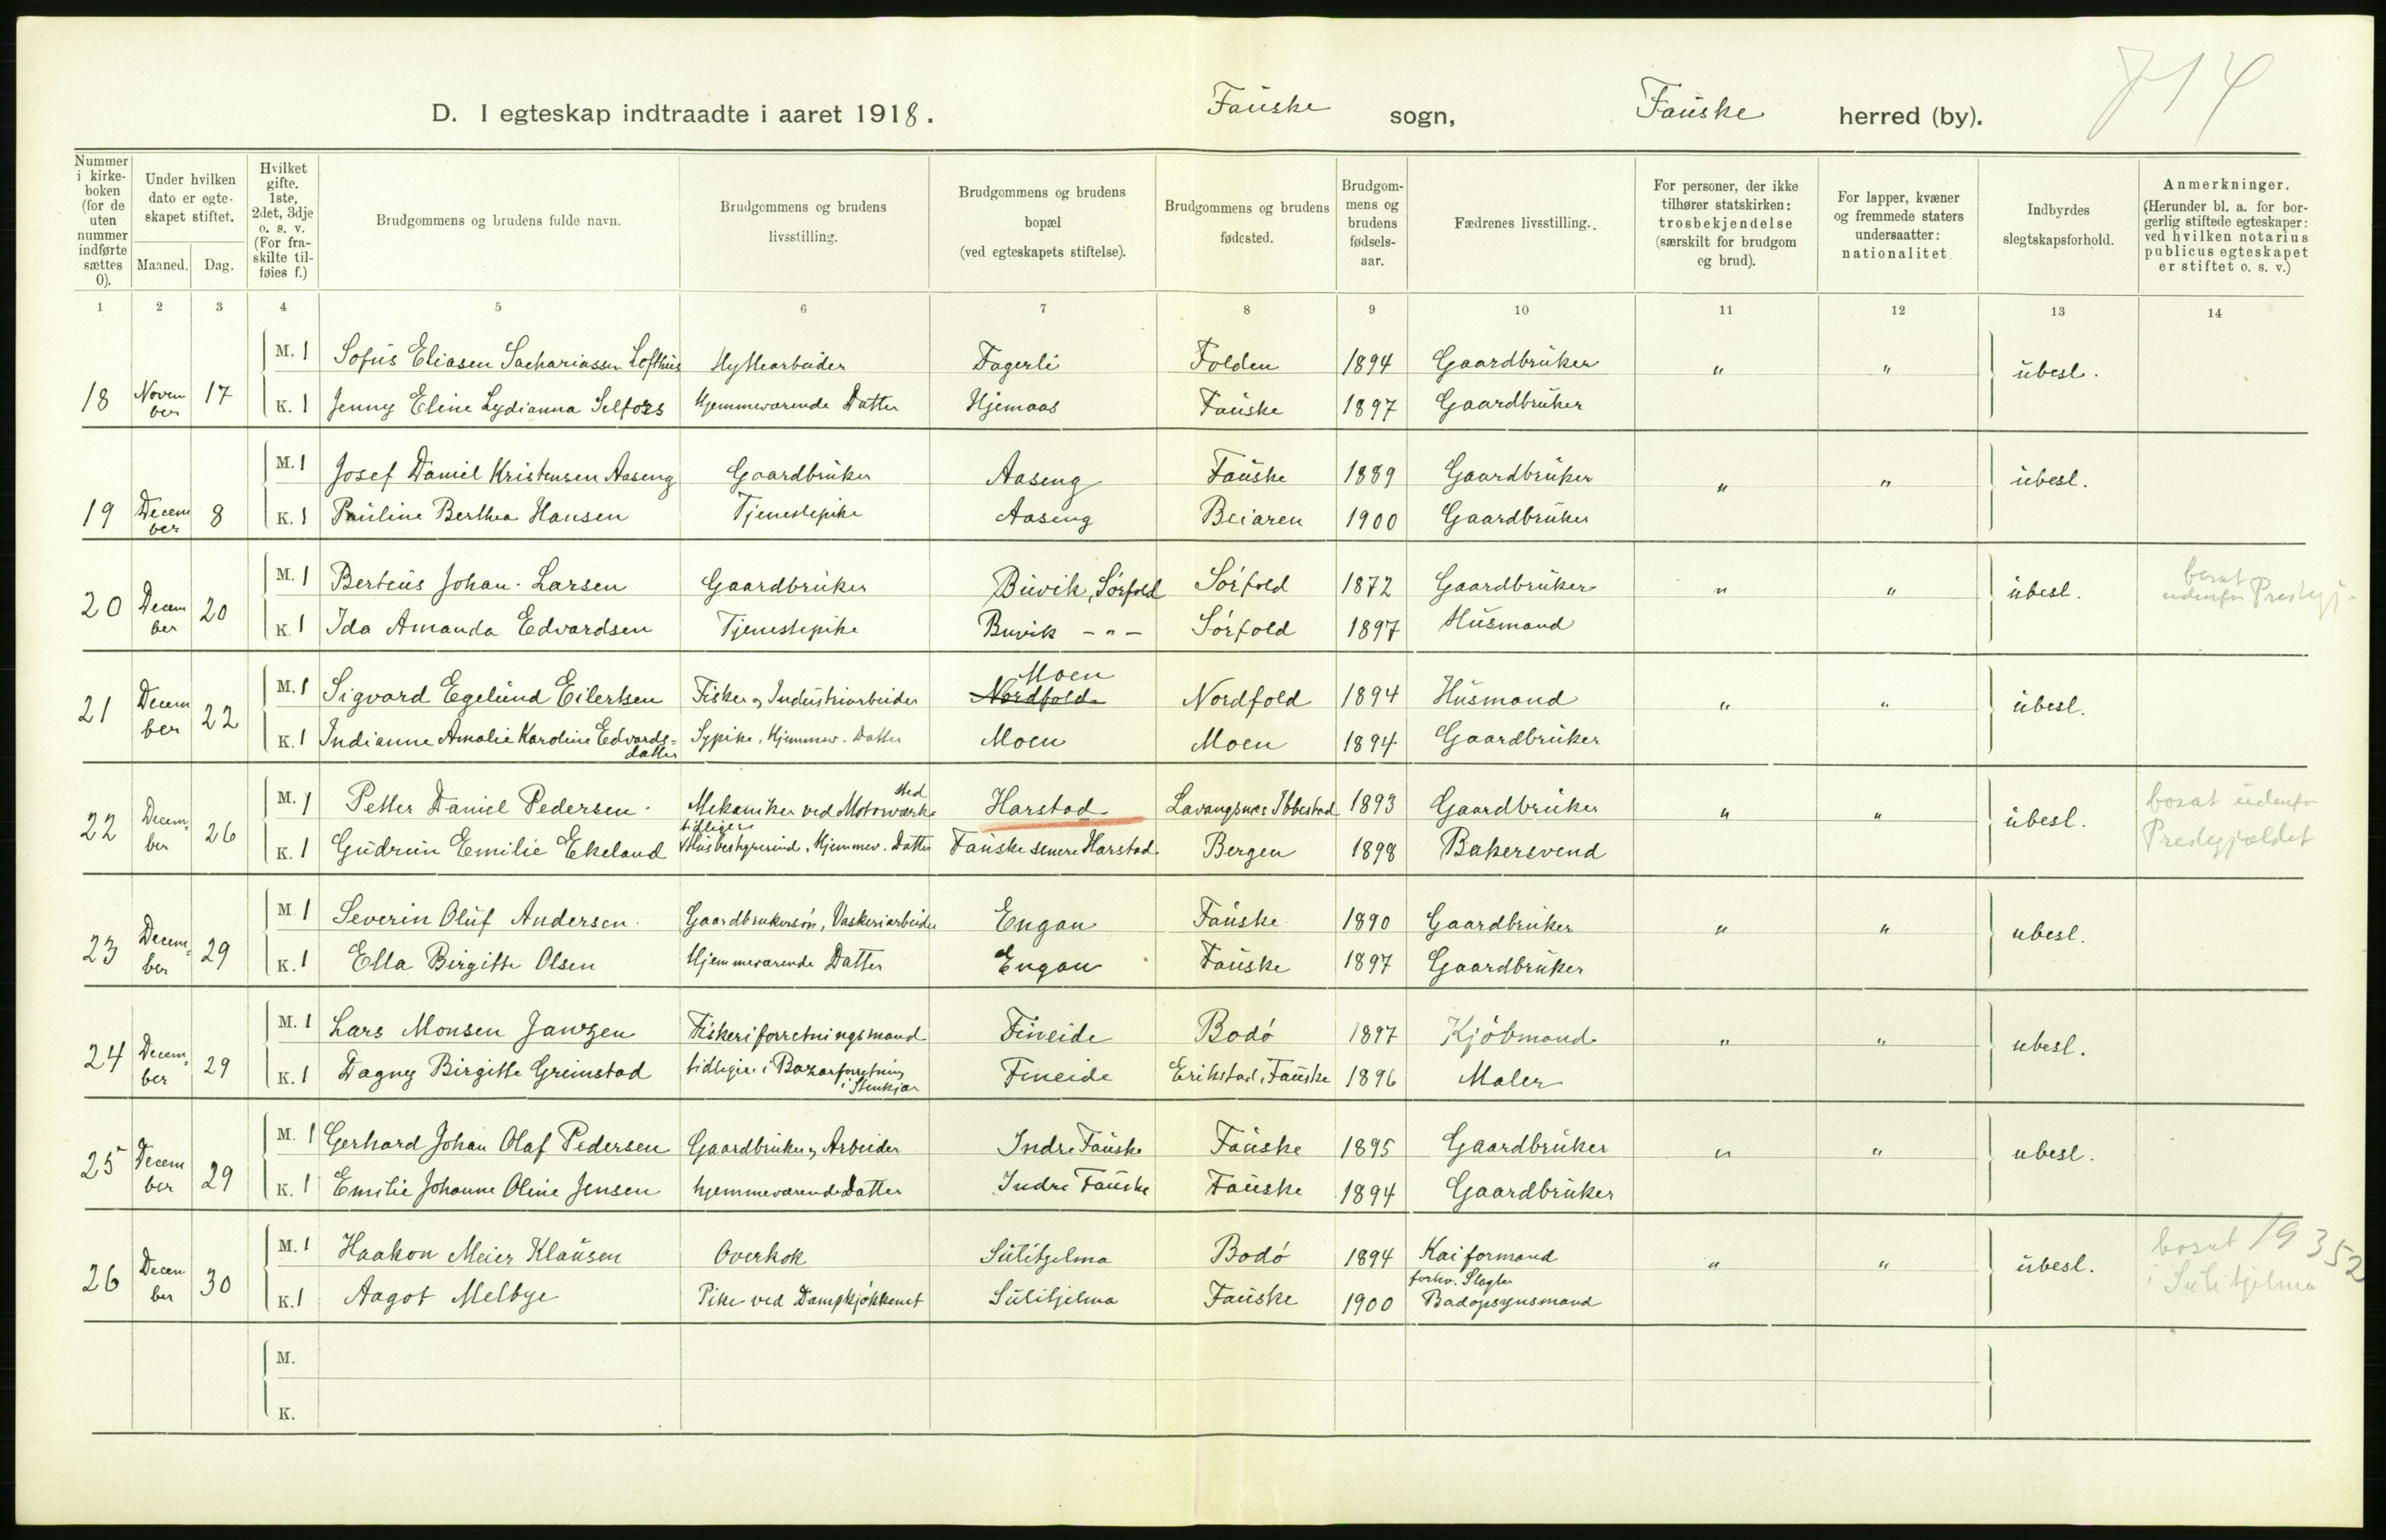 714
D. I egteskap indtraadte i aaret 1918. Fauske sogn, Fauske herred (by).
Nummer i kirkeboken (for de uten nummer indførte sættes 0).
Under hvilken dato er egteskapet stiftet.
Maaned. Dag.
Hvilket gifte. 1ste, 2det, 3dje o. s. v. (For fraskilte tilføies f.)
Brudgommens og brudens fulde navn.
Brudgommens og brudens livsstilling.
Brudgommens og brudens bopæl (ved egteskapets stiftelse).
Brudgommens og brudens fødested.
Brudgommens og brudens fødselsaar.
Fædrenes livsstilling.
For personer, der ikke tilhører statskirken: trosbekjendelse (særskilt for brudgom og brud).
For lapper, kvæner og fremmede staters undersaatter: nationalitet.
Indbyrdes slegtskapsforhold.
Anmerkninger. (Herunder bl. a. for borgerlig stiftede egteskaper: ved hvilken notarius publicus egteskapet er stiftet o. s. v.)
1 2 3 4 5 6 7 8 9 10 11 12 13 14
M. 1 Sofus Eliasen Sachariassen Lofthus Hyttearbeider Fagerli Folden 1894 Gaardbruker " " ubesl.
18 November 17 K. 1 Jenny Eline Lydianna Selfors Hjemmeværende Datter Hjemaas Fauske 1897 Gaardbruker
M. 1 Josef Daniel Kristensen Aaseng Gaardbruker Aaseng Fauske 1889 Gaardbruker " " ubesl.
19 December 8 K. 1 Pauline Berthea Hansen Tjenestepike Aaseng Beiaren 1900 Gaardbruker
M. 1 Berteus Johan Larsen Gaardbruker Buvik, Sørfold Sørfold 1872 Gaardbruker " " ubesl. bosat udenfor Prestegj.
20 December 20 K. 1 Ida Amanda Edvardsen Tjenestepike Buvik - " - Sørfold 1897 Husmand
M. 1 Sigvard Egelund Eilertsen Fisker og Industriarbeider Nordfold Moen Nordfold 1894 Husmand " " ubesl.
21 December 22 K. 1 Indianne Amalie Karoline Edvardsdatter Sypike, Hjemmev. Datter Moen Moen 1894 Gaardbruker
M. 1 Petter Daniel Pedersen Mekaniker ved Motorværksted Harstad Lavangsnes Ibbestad 1893 Gaardbruker " " ubesl. bosat udenfor Prestegjældet
22 December 26 K. 1 Gudrun Emilie Ekeland tidligere Husbestyrerind, Hjemmev. Datter Fauske senere Harstad Bergen 1898 Bakersvend
M. 1 Severin Oluf Andersen Gaardbrukersøn, Vaskeriarbeider Engan Fauske 1890 Gaardbruker " " ubesl.
23 December 29 K. 1 Ella Birgitte Olsen Hjemmeværende Datter Engan Fauske 1897 Gaardbruker
M. 1 Lars Monsen Jantzen Fiskeriforretningsmand Fineide Bodø 1897 Kjøbmand " " ubesl.
24 December 29 K. 1 Dagny Birgitte Greinstad tidligere i Bazarforretning i Stenkjær Fineide Erikstad, Fauske 1896 Maler
M. 1 Gerhard Johan Olaf Pedersen Gaardbruker og Arbeider Indre Fauske Fauske 1895 Gaardbruker " " ubesl.
25 December 29 K. 1 Emilie Johanne Oline Jensen hjemmeværende Datter Indre Fauske Fauske 1894 Gaardbruker
M. 1 Haakon Meier Klausen Overkok Sulitjelma Bodø 1894 Kaiformand " " ubesl. bosat i Sulitjelma 19352
26 December 30 K. 1 Aagot Melbye Pike ved Dampkjøkkenet Sulitjelma Fauske 1900 forhv. Slagter Badopsynsmand
M.
K.